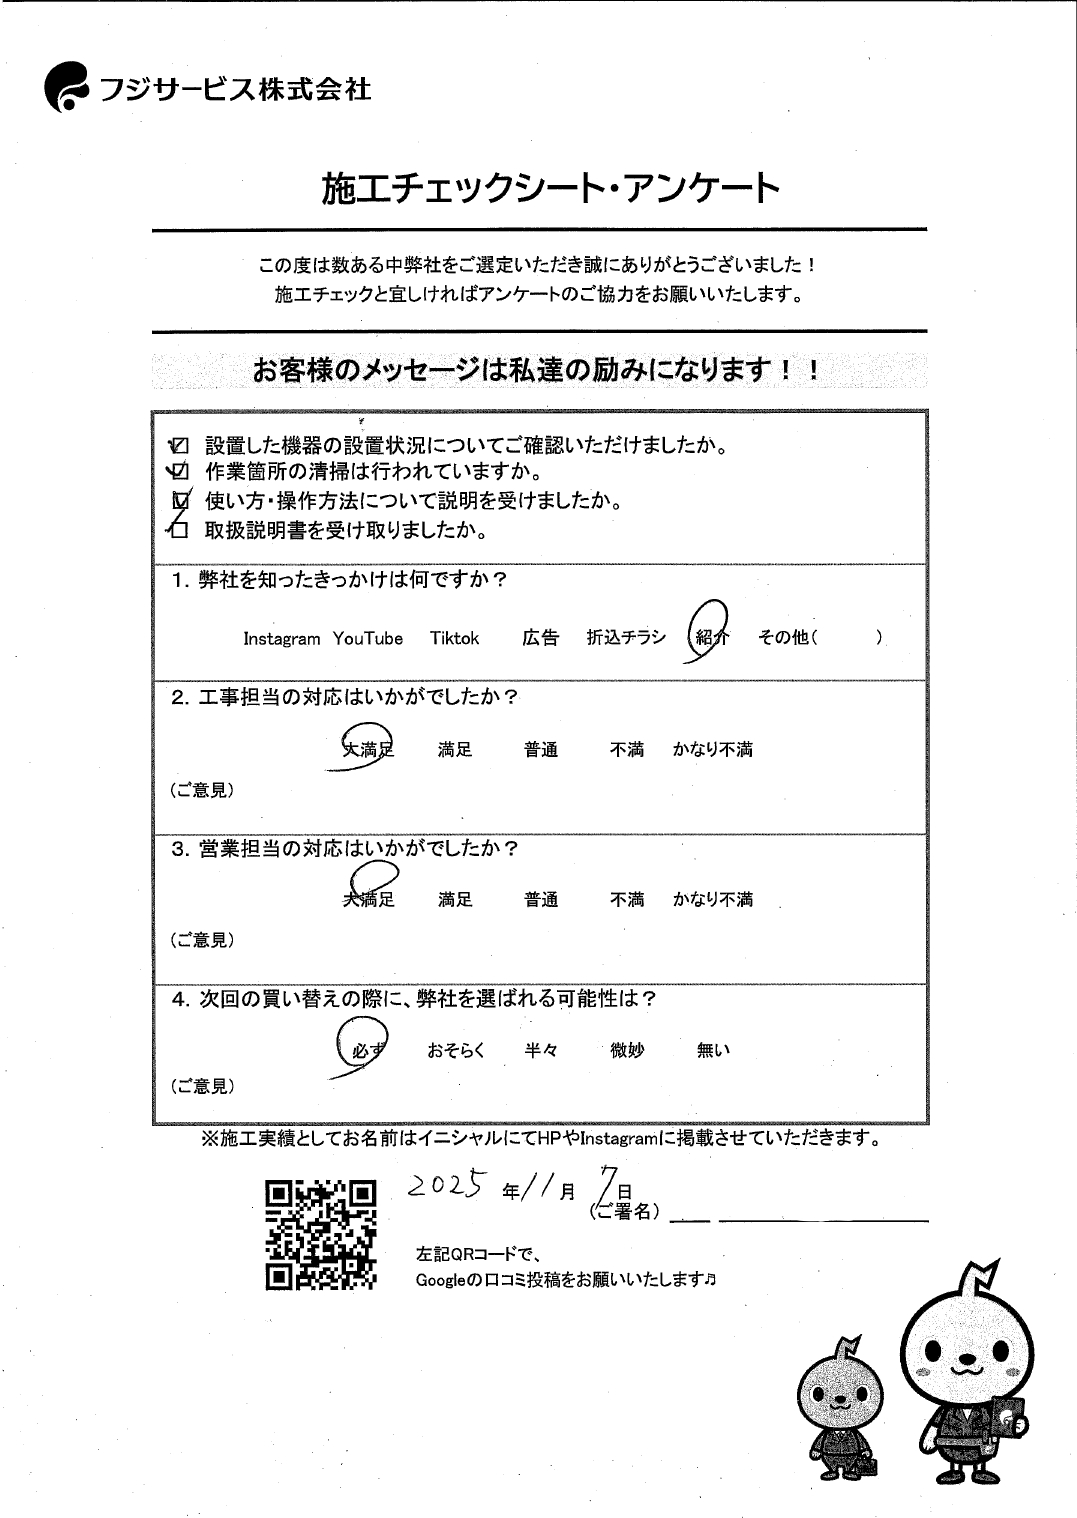 フジサービス株式会社
施工チェックシート・アンケート
この度は数ある中弊社をご選定いただき誠にありがとうございました！
施工チェックと宜しければアンケートのご協力をお願いいたします。
お客様のメッセージは私達の励みになります！！
☑ 設置した機器の設置状況についてご確認いただけましたか。
☑ 作業箇所の清掃は行われていますか。
☑ 使い方・操作方法について説明を受けましたか。
☑ 取扱説明書を受け取りましたか。
1. 弊社を知ったきっかけは何ですか？
Instagram YouTube Tiktok 広告 折込チラシ 紹介 その他( )
2. 工事担当の対応はいかがでしたか？
大満足 満足 普通 不満 かなり不満
(ご意見)
3. 営業担当の対応はいかがでしたか？
大満足 満足 普通 不満 かなり不満
(ご意見)
4. 次回の買い替えの際に、弊社を選ばれる可能性は？
必ず おそらく 半々 微妙 無い
(ご意見)
※施工実績としてお名前はイニシャルにてHPやInstagramに掲載させていただきます。
2025 年 11 月 7 日
(ご署名)
左記QRコードで、
Googleの口コミ投稿をお願いいたします♬